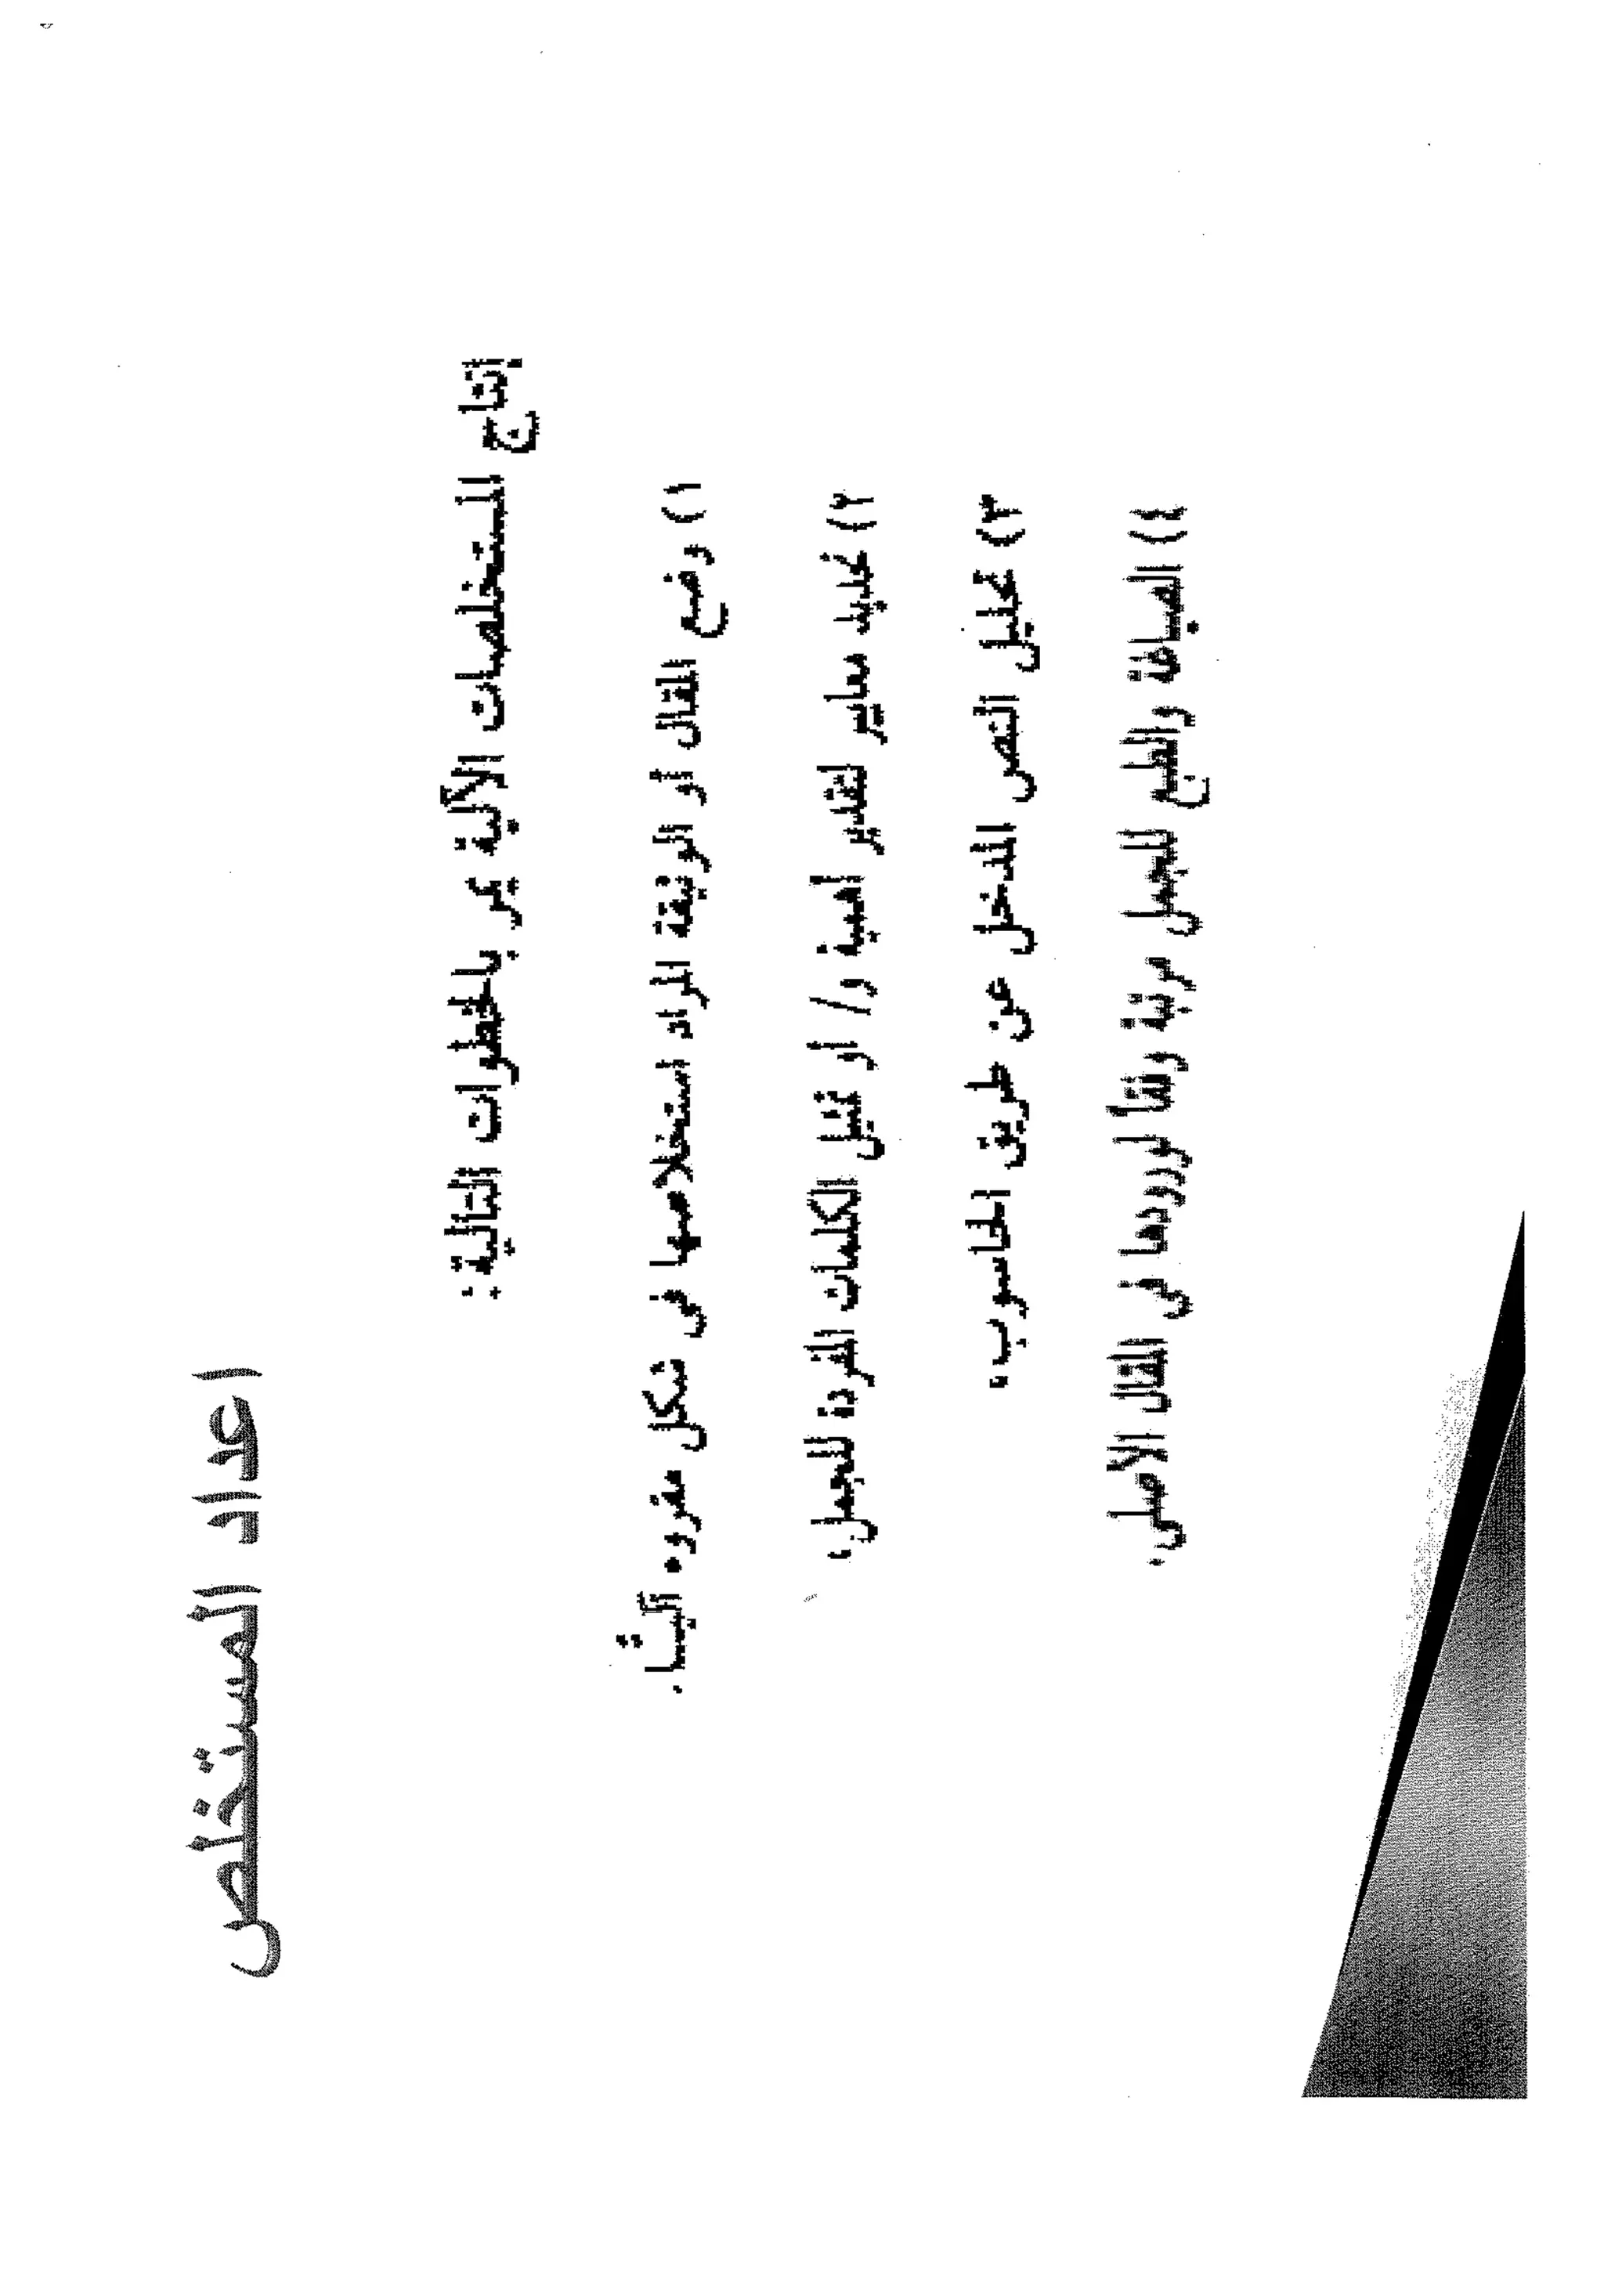 اعداد المستخلص
إنتاج المستخلصات الآلية يمر بالخطوات التالية:
١) وضع المقال أو الوثيقة المراد استخلاصها في شكل مقروء آليًّا.
٢) تحديد معايير لتقدير أهمية و/ أو تمثيل الكلمات المفردة للجمل،
٣) تحليل النص المدخل عن طريق الحاسوب،
٤) الصياغة والطبع للجمل مرتبة وفقاً لورودها في المقال الأصلي.